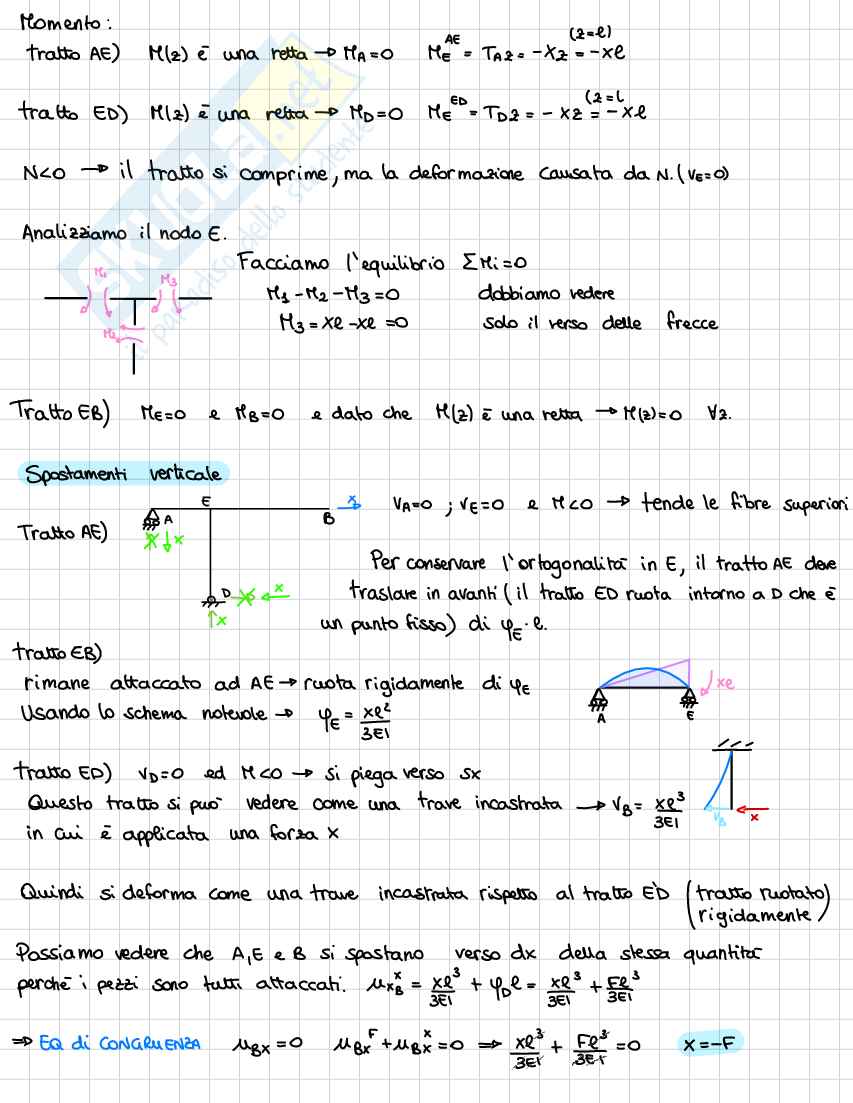 Momento:
tratto AE) M(z) è una retta → M_A=0 M_E^AE = T_A z = -Xz = -xl (z=l)
tratto ED) M(z) è una retta → M_D=0 M_E^ED = T_D z = - xz = - xl (z=l
N<0 → il tratto si comprime, ma la deformazione causata da N. (v_E=0)
Analizziamo il nodo E.
Facciamo l'equilibrio ΣMi=0
M1 M3 M2
M_1 - M_2 - M_3 = 0 dobbiamo vedere
M_3 = xl - xl = 0 solo il verso delle frecce
Tratto EB) M_E=0 e M_B=0 e dato che M(z) è una retta → M(z)=0 ∀z.
Spostamenti verticale
E A B x
V_A=0 ; V_E=0 e M<0 → tende le fibre superiori
Tratto AE) x
D x x
Per conservare l'ortogonalità in E, il tratto AE deve
traslare in avanti (il tratto ED ruota intorno a D che è
un punto fisso) di φ_E · l.
tratto EB)
rimane attaccato ad AE → ruota rigidamente di φ_E
Usando lo schema notevole → φ_E = xl²/3EI
A E xl
tratto ED) V_D=0 ed M<0 → si piega verso sx
Questo tratto si può vedere come una trave incastrata → V_B = xl³/3EI
V_B x
in cui è applicata una forza x
Quindi si deforma come una trave incastrata rispetto al tratto ED (tratto ruotato
rigidamente)
Possiamo vedere che A, E e B si spostano verso dx della stessa quantità
perchè i pezzi sono tutti attaccati. μ_xB^x = xl³/3EI + φ_D l = xl³/3EI + Fl³/3EI
⇒ EQ di CONGRUENZA μ_Bx = 0 μ_Bx^F + μ_Bx^x = 0 ⇒ xl³/3EI + Fl³/3EI = 0 x=-F
skuola.net
il paradiso dello studente